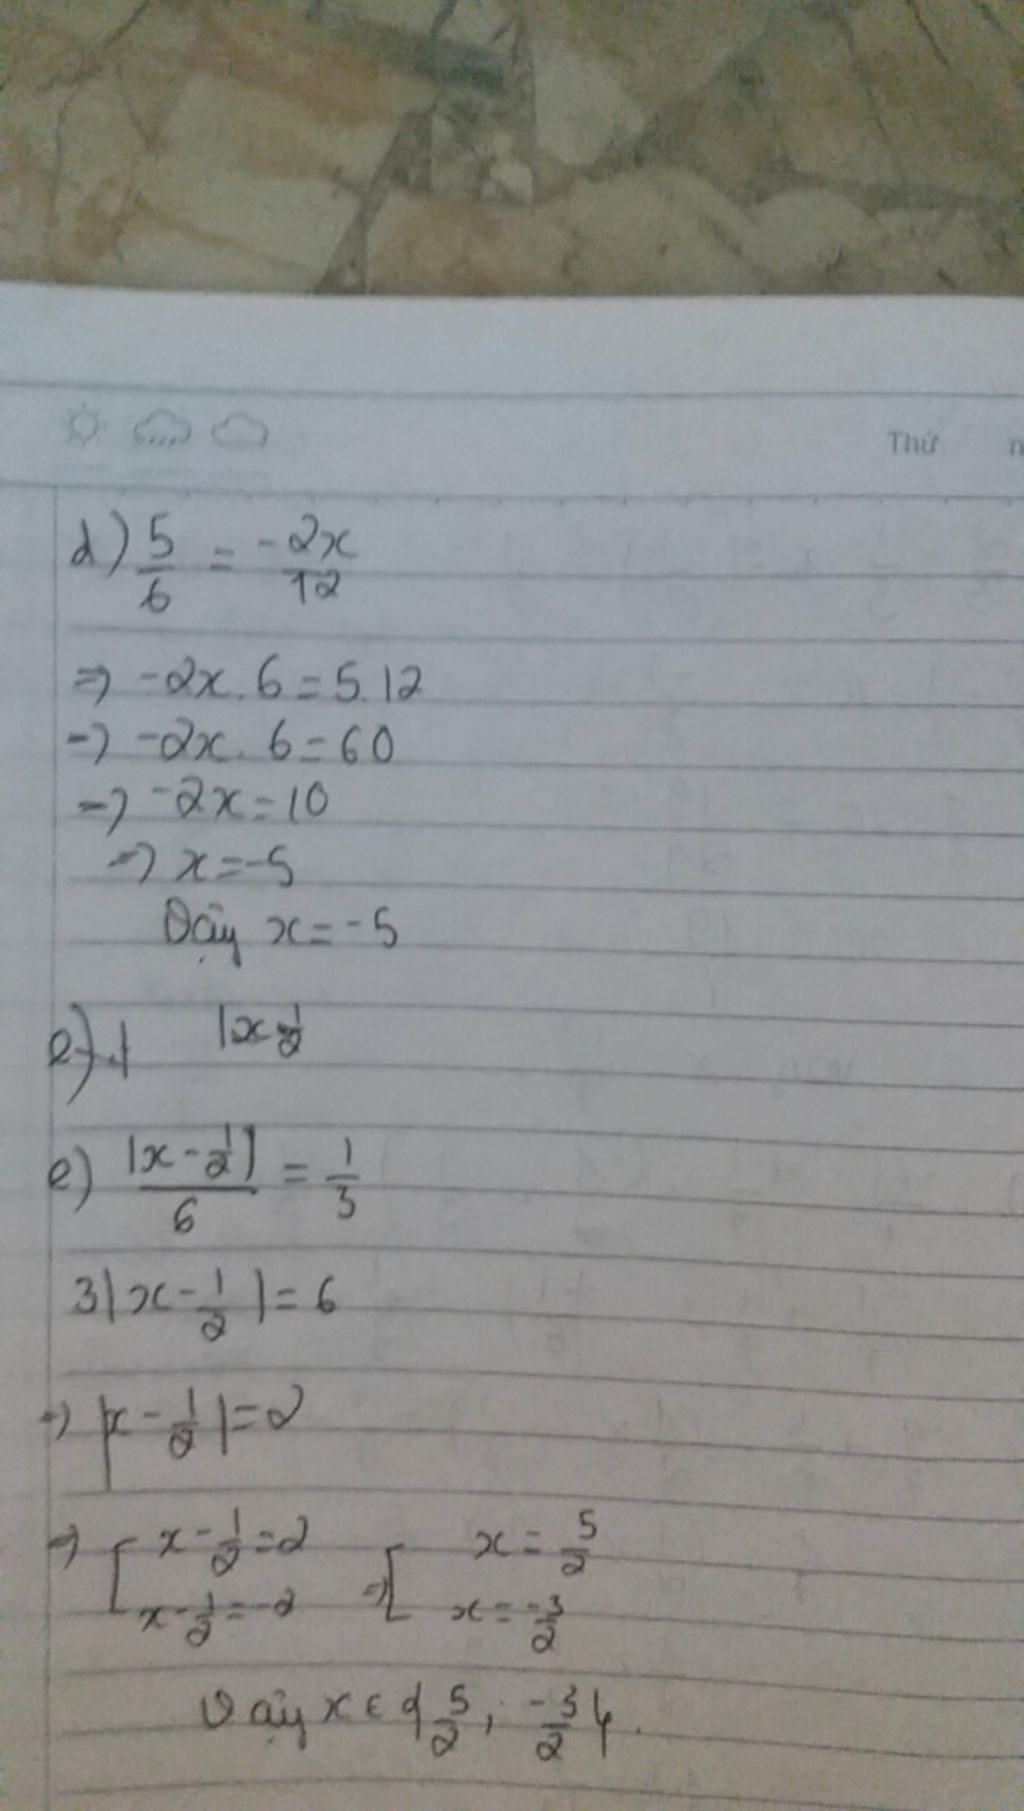 Thứ n
d) 5/6 = -2x/12
=> -2x. 6 = 5.12
=> -2x. 6 = 60
=> -2x = 10
=> x = -5
Vậy x = -5
e) |x-1/2
e) |x - 1/2|/6 = 1/3
3|x - 1/2| = 6
=> |x - 1/2| = 2
=> [ x - 1/2 = 2 => [ x = 5/2
x - 1/2 = -2 x = -3/2
Vậy x ∈ {5/2; -3/2}.